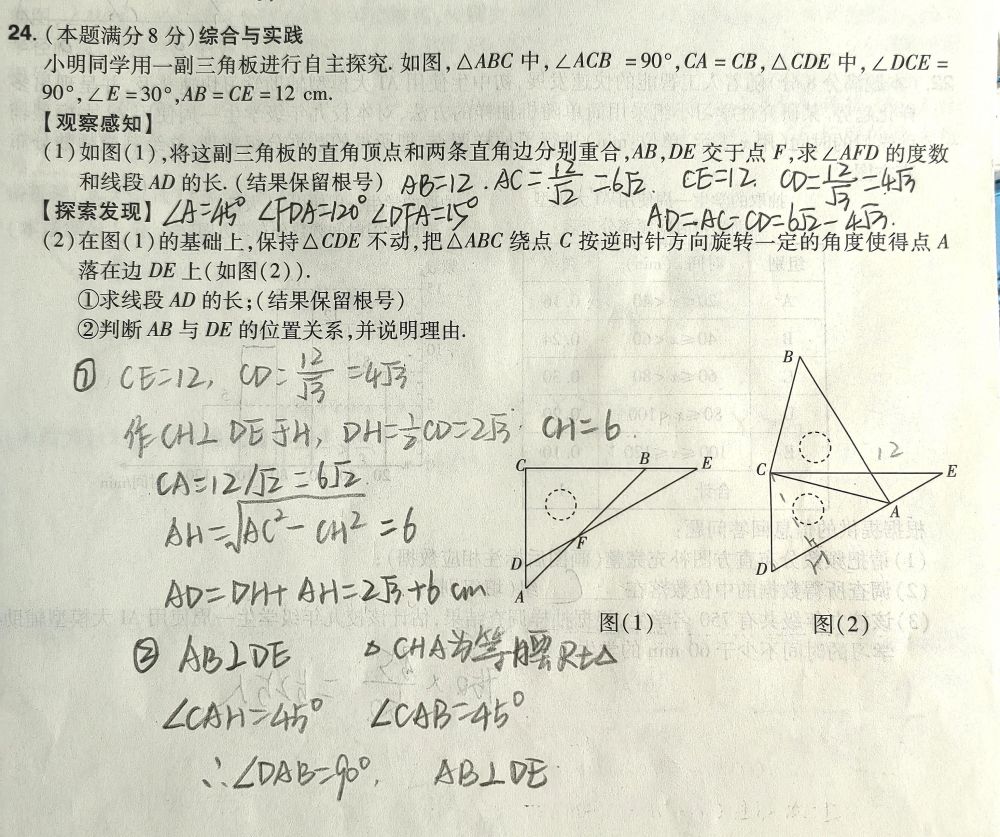 24. (本题满分8分)综合与实践
小明同学用一副三角板进行自主探究. 如图,△ABC 中,∠ACB =90°,CA=CB,△CDE 中,∠DCE=
90°,∠E=30°,AB=CE=12 cm.
【观察感知】
(1)如图(1),将这副三角板的直角顶点和两条直角边分别重合,AB,DE 交于点 F,求∠AFD 的度数
和线段 AD 的长. (结果保留根号) AB=12 . AC=12/√2=6√2. CE=12. CD=12/√3=4√3
【探索发现】∠A=45° ∠FDA=120° ∠DFA=15° AD=AC-CD=6√2-4√3.
(2)在图(1)的基础上,保持△CDE 不动,把△ABC 绕点 C 按逆时针方向旋转一定的角度使得点 A
落在边 DE 上(如图(2)).
①求线段 AD 的长;(结果保留根号)
②判断 AB 与 DE 的位置关系,并说明理由.
① CE=12, CD=12/√3=4√3
作CH⊥DE于H, DH=1/2CD=2√3. CH=6.
CA=12/√2=6√2
AH=√AC²-CH²=6
AD=DH+AH=2√3+6 cm
② AB⊥DE △CHA为等腰Rt△
∠CAH=45° ∠CAB=45°
∴∠DAB=90°, AB⊥DE
C B E
F
D
A
图(1)
B
12
C E
A
D
图(2)